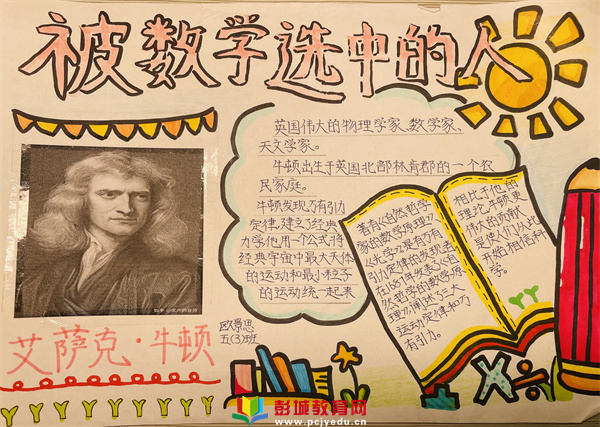 被数学选中的人
英国伟大的物理学家、数学家、
天文学家。
牛顿出生于英国北部林肯郡的一个农
民家庭。
牛顿发现万有引力
定律,建立了经典
力学,他用一个公式将
经典宇宙中最大天体
的运动和最小粒子
的运动统一起来
著有《自然哲学
家的数学原理》
《光学》。还有万有
引力定律的发现者
在1687年发表《自
然哲学的数学原
理》阐述了三大
运动定律和万
有引力。
相比于他的
理论,牛顿更
伟大的贡献
是使人们从此
开始相信科
学。
艾萨克·牛顿
欧景思
五(3)班
彭城教育网
www.pcjyedu.cn